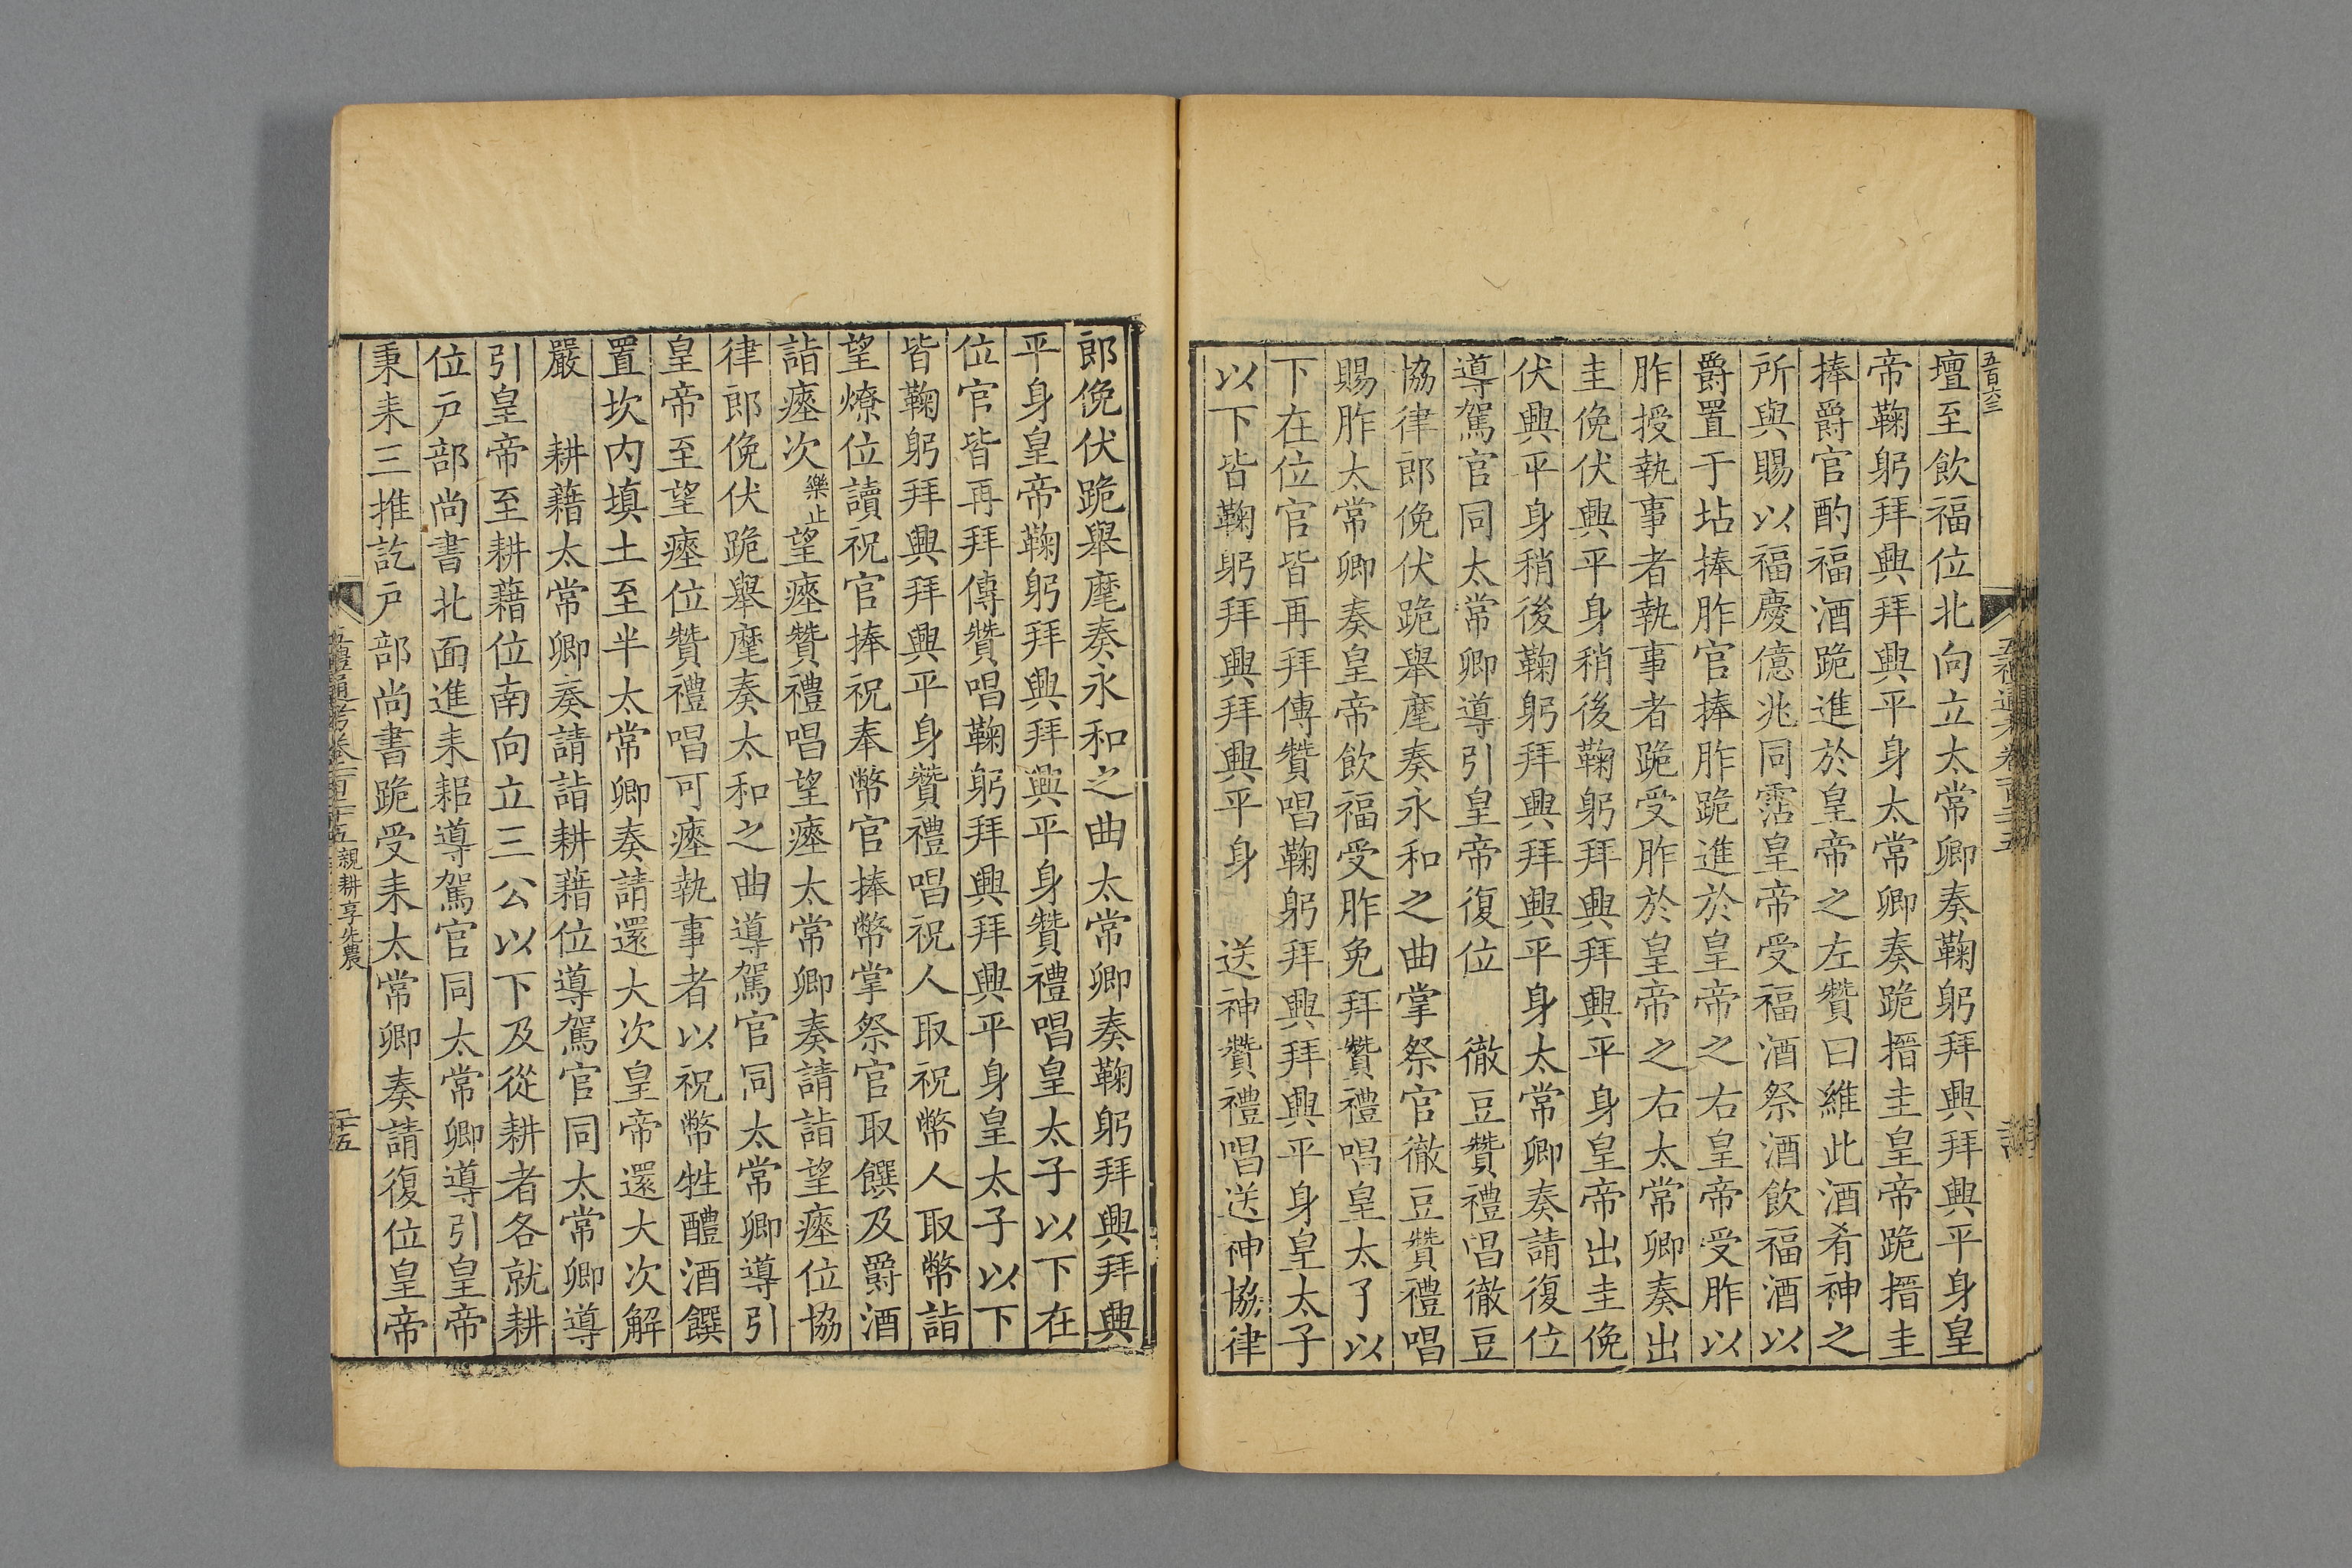 五百六三
壇至飲福位北向立太常卿奏鞠躬拜興拜興平身皇
帝鞠躬拜興拜興平身太常卿奏跪搢圭皇帝跪搢圭
捧爵官酌福酒跪進於皇帝之左贊曰維此酒肴神之
所與賜以福慶億兆同霑皇帝受福酒祭酒飲福酒以
爵置于坫捧胙官捧胙跪進於皇帝之右皇帝受胙以
胙授執事者執事者跪受胙於皇帝之右太常卿奏出
圭俛伏興平身稍後鞠躬拜興拜興平身皇帝出圭俛
伏興平身稍後鞠躬拜興拜興平身太常卿奏請復位
導駕官同太常卿導引皇帝復位 徹豆贊禮唱徹豆
協律郎俛伏跪舉麾奏永和之曲掌祭官徹豆贊禮唱
賜胙太常卿奏皇帝飲福受胙免拜贊禮唱皇太子以
下在位官皆再拜傳贊唱鞠躬拜興拜興平身皇太子
以下皆鞠躬拜興拜興平身 送神贊禮唱送神協律
郎俛伏跪舉麾奏永和之曲太常卿奏鞠躬拜興拜興
平身皇帝鞠躬拜興拜興平身贊禮唱皇太子以下在
位官皆再拜傳贊唱鞠躬拜興拜興平身皇太子以下
皆鞠躬拜興拜興平身贊禮唱祝人取祝幣人取幣詣
望燎位讀祝官捧祝奉幣官捧幣掌祭官取饌及爵酒
詣瘞次樂止望瘞贊禮唱望瘞太常卿奏請詣望瘞位協
律郎俛伏跪舉麾奏太和之曲導駕官同太常卿導引
皇帝至望瘞位贊禮唱可瘞執事者以祝幣牲醴酒饌
置坎内填土至半太常卿奏請還大次皇帝還大次解
嚴 耕藉太常卿奏請詣耕藉位導駕官同太常卿導
引皇帝至耕藉位南向立三公以下及從耕者各就耕
位戸部尚書北面進耒耜導駕官同太常卿導引皇帝
秉耒三推訖戸部尚書跪受耒太常卿奏請復位皇帝
五禮通考卷一百二十五親耕享先農 二十五